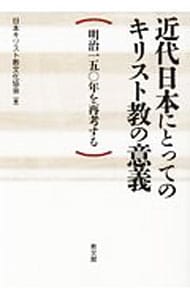 近代日本にとっての
キリスト教の意義
明治一五〇年を再考する
日本キリスト教文化協会[編]
教文館